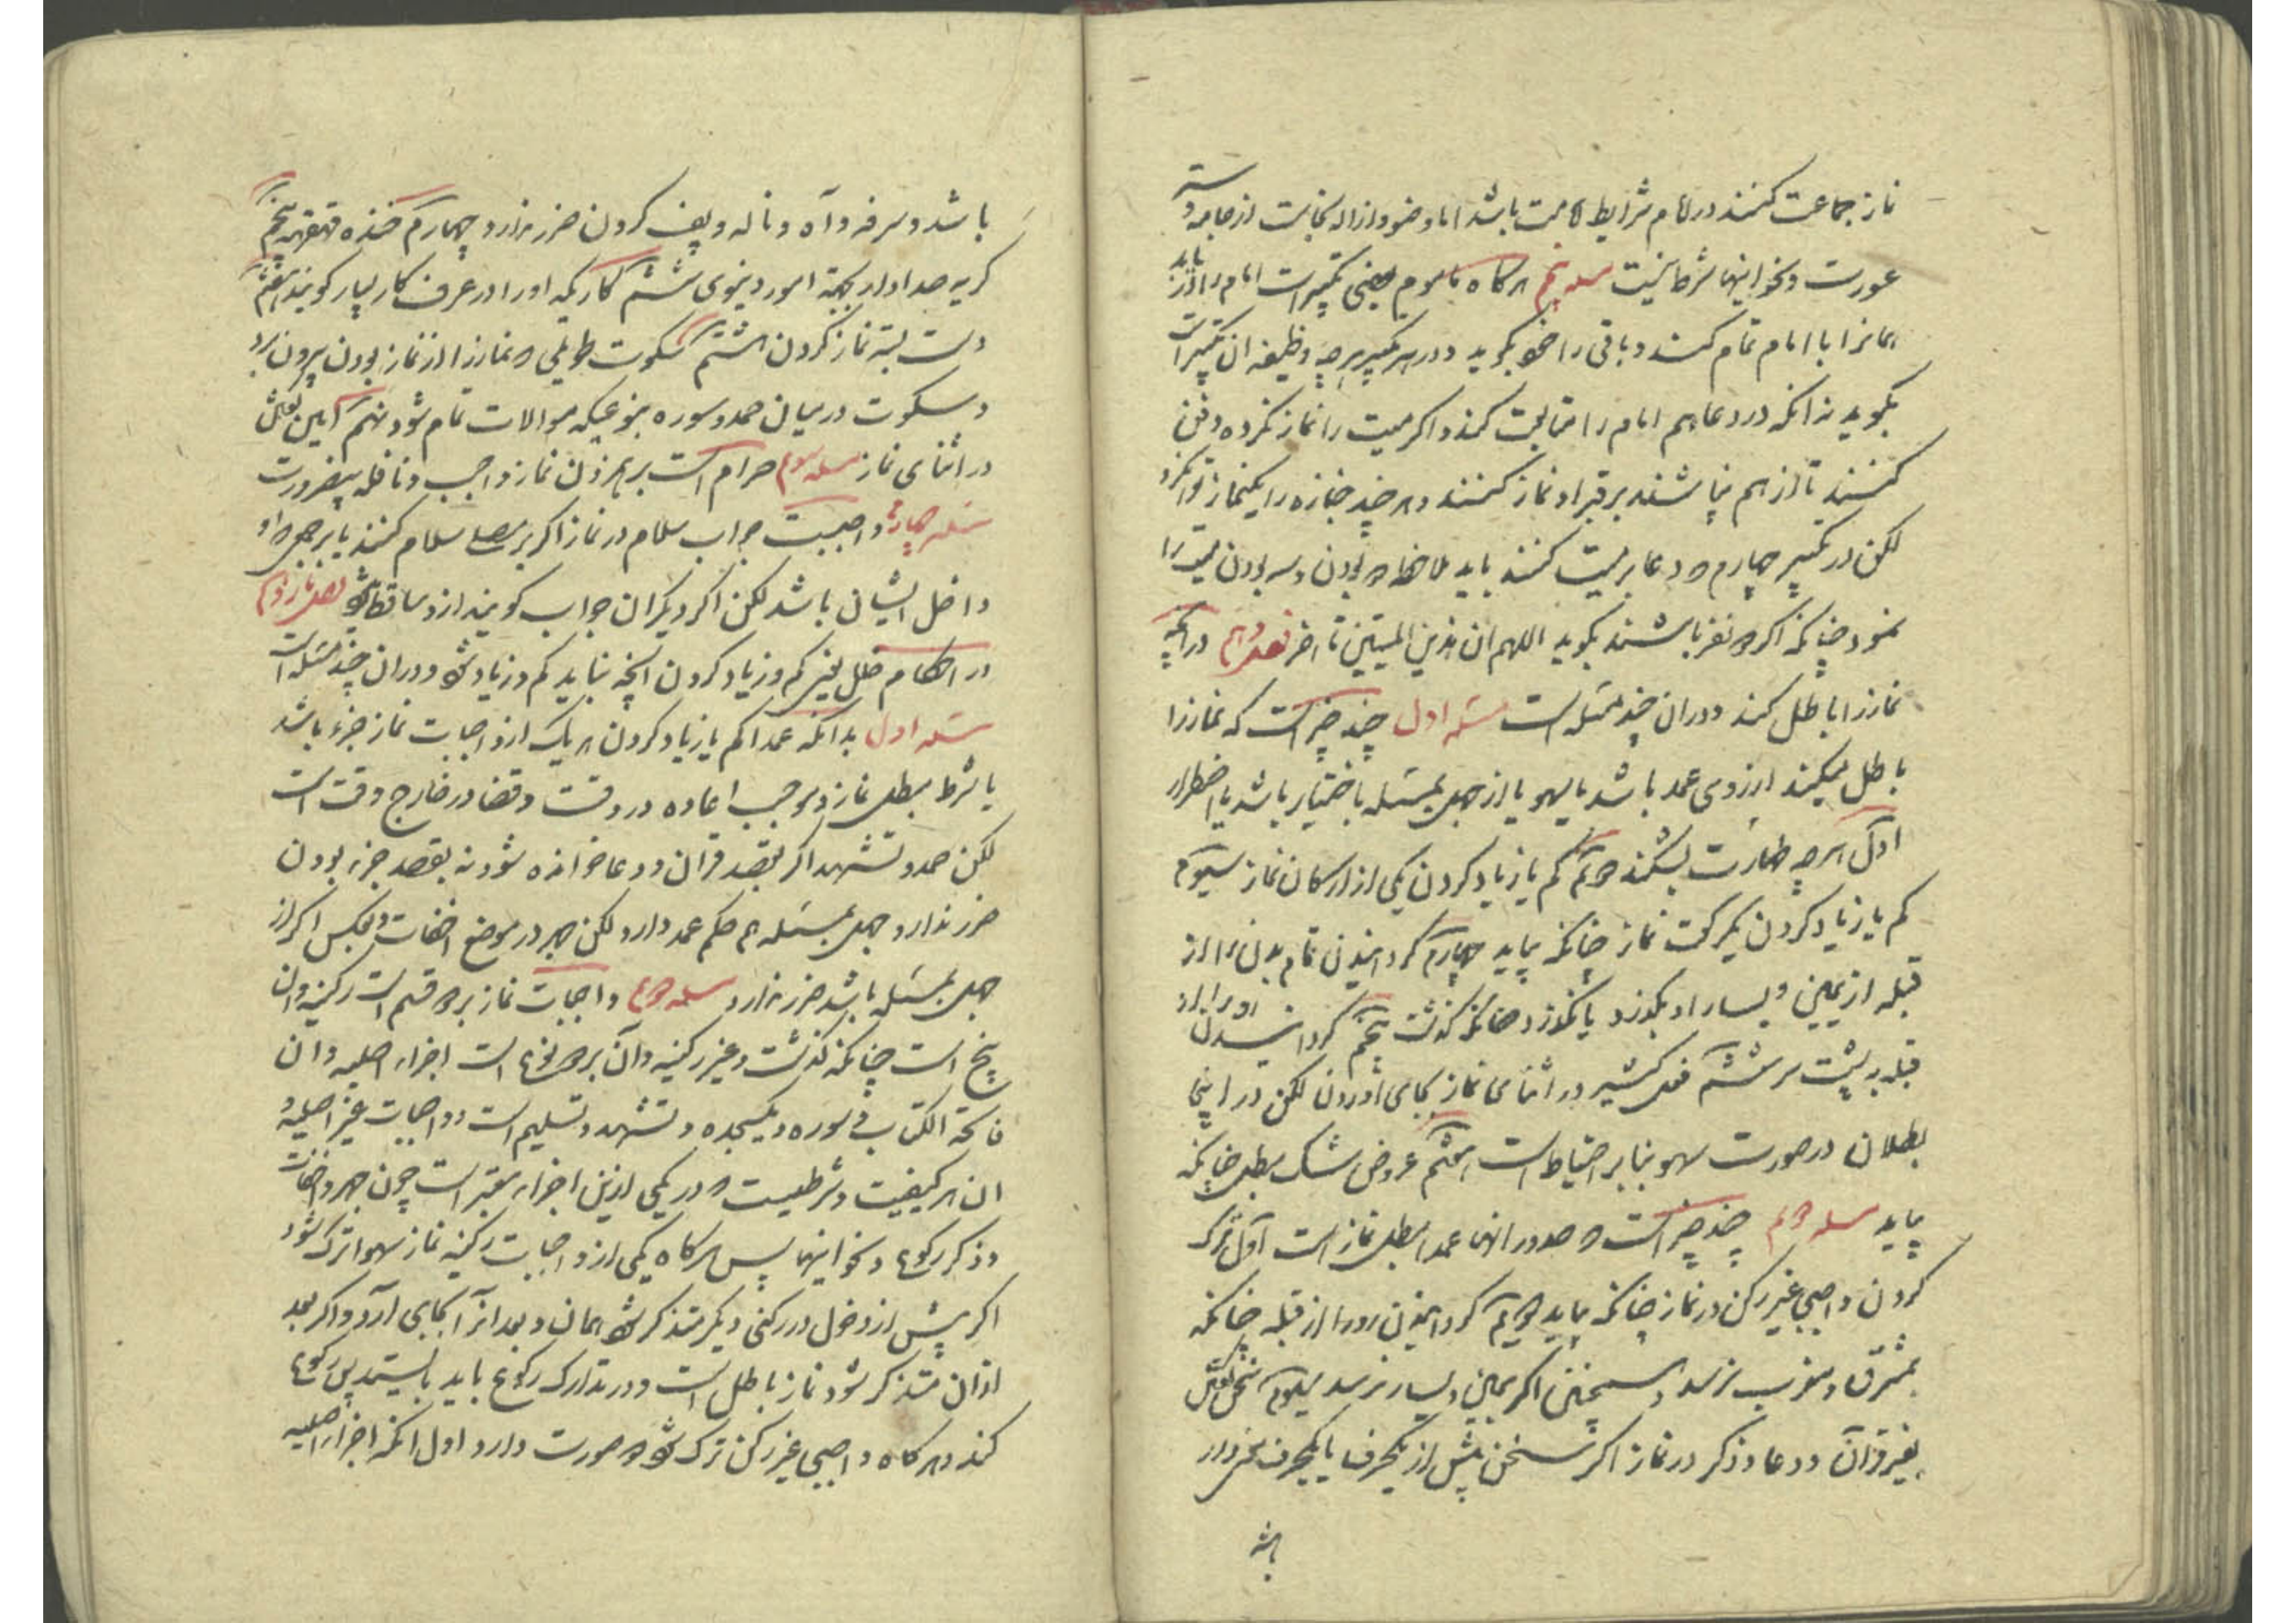 نماز جماعت کنند در امام شرایط امامت باشد اما وضو و ازاله نجاست از جامه و ستر
عورت و نحو اینها شرط نیست مسله پنجم هرکاه ماموم بعضی تکبیرات امام را از
انها را با امام تمام کند و باقی را خود بکوید و در هر تکبیر هرچه وظیفه ان تکبیر است
بکوید نه انکه در دعا هم امام را متابعت کند و اکر میت را نماز نکرده دفن
کنند تا از هم نپاشند بر قبر او نماز کنند و هر چند جنازه را یکنماز توان کرد
لکن در تکبیر چهارم که دعا بر میت کنند باید ملاحظه دو بودن و سه بودن میت را
نمود چنانکه اکر دو نفر باشند بکوید اللهم ان هذین المیتین تا اخر فصل دهم در انچه
نماز را باطل کند و در ان چند مسئله است مسئله اول چند چیز است که نماز را
باطل میکند از روی عمد باشد یا سهو یا از جهل بمسئله باختیار باشد یا اضطرار
اول هرچه طهارت بشکند دویم کم یا زیاد کردن یکی از ارکان نماز سیوم
کم یا زیاد کردن یکرکعت نماز چنانکه بیاید چهارم کردانیدن تمام بدن را از
قبله از یمین و یسار او بکذرد یا نکذرد چنانکه کذشت پنجم کردانیدن او را از
قبله به پشت سر ششم فعل کثیر در اثنای نماز بجای آوردن لکن در اینجا
بطلان در صورت سهو بنابر احتیاط است هفتم عروض شک مبطل چنانکه
بیاید مسله دویم چند چیز است که صدور انها عمدا مبطل نماز است اول ترک
کردن واجبی غیر رکن در نماز چنانکه بیاید دویم کردانیدن رو را از قبله چنانکه
بمشرق و مغرب نرسد و همچنین اکر بیمین و یسار نرسد سیوم سخن کفتن
بغیر قران و دعا و ذکر در نماز اکر سخن بیش از یکحرف یا یکحرف معنی دار
باشد
باشد و سرفه و آه و ناله و پف کردن ضرر ندارد چهارم خنده قهقهه پنجم
کریه صدا دار بجهة امور دنیوی ششم کاریکه او را در عرف کار بسیار کویند هفتم
دست بسته نماز کردن هشتم سکوت طویلی که نماز را از نماز بودن بیرون برد
و سکوت در میان حمد و سوره بنوعیکه موالات تمام شود نهم آمین کفتن
در اثنای نماز مسله سوم حرام است بر هم زدن نماز واجب و نافله بیضرورت
مسئله چهارم واجبست جواب سلام در نماز اکر بر مصلی سلام کنند یا بر جمعی که او
داخل ایشان باشد لکن اکر دیکران جواب کویند از او ساقط شود فصل یازدهم
در احکام خلل یعنی کم و زیاد کردن انچه نباید کم و زیاد شود و در ان چند مسئله است
مسئله اول بدانکه عمدا کم یا زیاد کردن هر یک از واجبات نماز جزء باشد
یا شرط مبطل نماز و موجب اعاده در وقت و قضا در خارج وقت است
لکن حمد و تشهد اکر بقصد قران و دعا خوانده شود نه بقصد جزء بودن
ضرر ندارد و جهل بمسئله هم حکم عمد دارد لکن جهر در موضع اخفات و بعکس اکر از
جهل بمسئله باشد ضرر ندارد مسله دویم واجبات نماز بر دو قسم است رکنیه و ان
پنج است چنانکه کذشت و غیر رکنیه و آن بر دو نوع است اجزاء اصلیه و ان
فاتحة الکتاب و سوره و یکسجده و تشهد و تسلیم است و واجبات غیر اصلیه و
ان هر کیفیت و شرطیست که در یکی ازین اجزاء معتبر است چون جهر و اخفات
و ذکر رکوع و نحو اینها پس هرکاه یکی از واجبات رکنیه نماز سهوا ترک شود
اکر پیش از دخول در رکنی دیکر متذکر شود همان و بعد انرا بجای آرد و اکر بعد
از ان متذکر شود نماز باطل است و در تدارک رکوع باید بایستد پس رکوع
کند و هرکاه واجبی غیر رکن ترک شود دو صورت دارد اول انکه اجزاء اصلیه